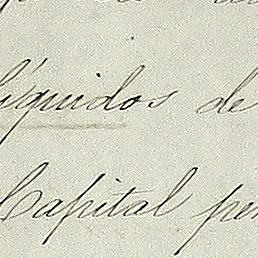 líquidos de
Capital per